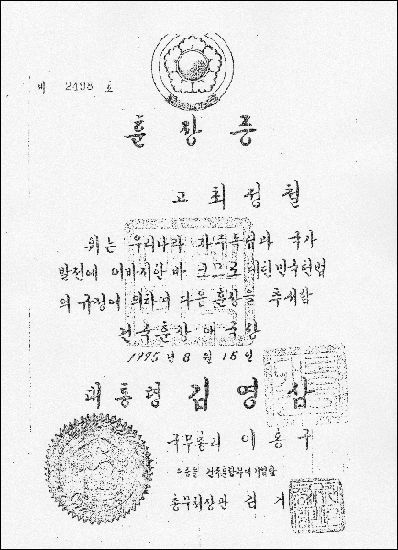 제 2498 호
훈장증
고 최성철
위는 우리나라 자주독립과 국가
발전에 이바지한바 크므로 대한민국헌법
의 규정에 의하여 다음 훈장을 추서함
건국훈장 애국장
1995년 8월 15일
대통령 김영삼
국무총리 이홍구
이증을 건국훈장부에 기입함
총무처장관 김기